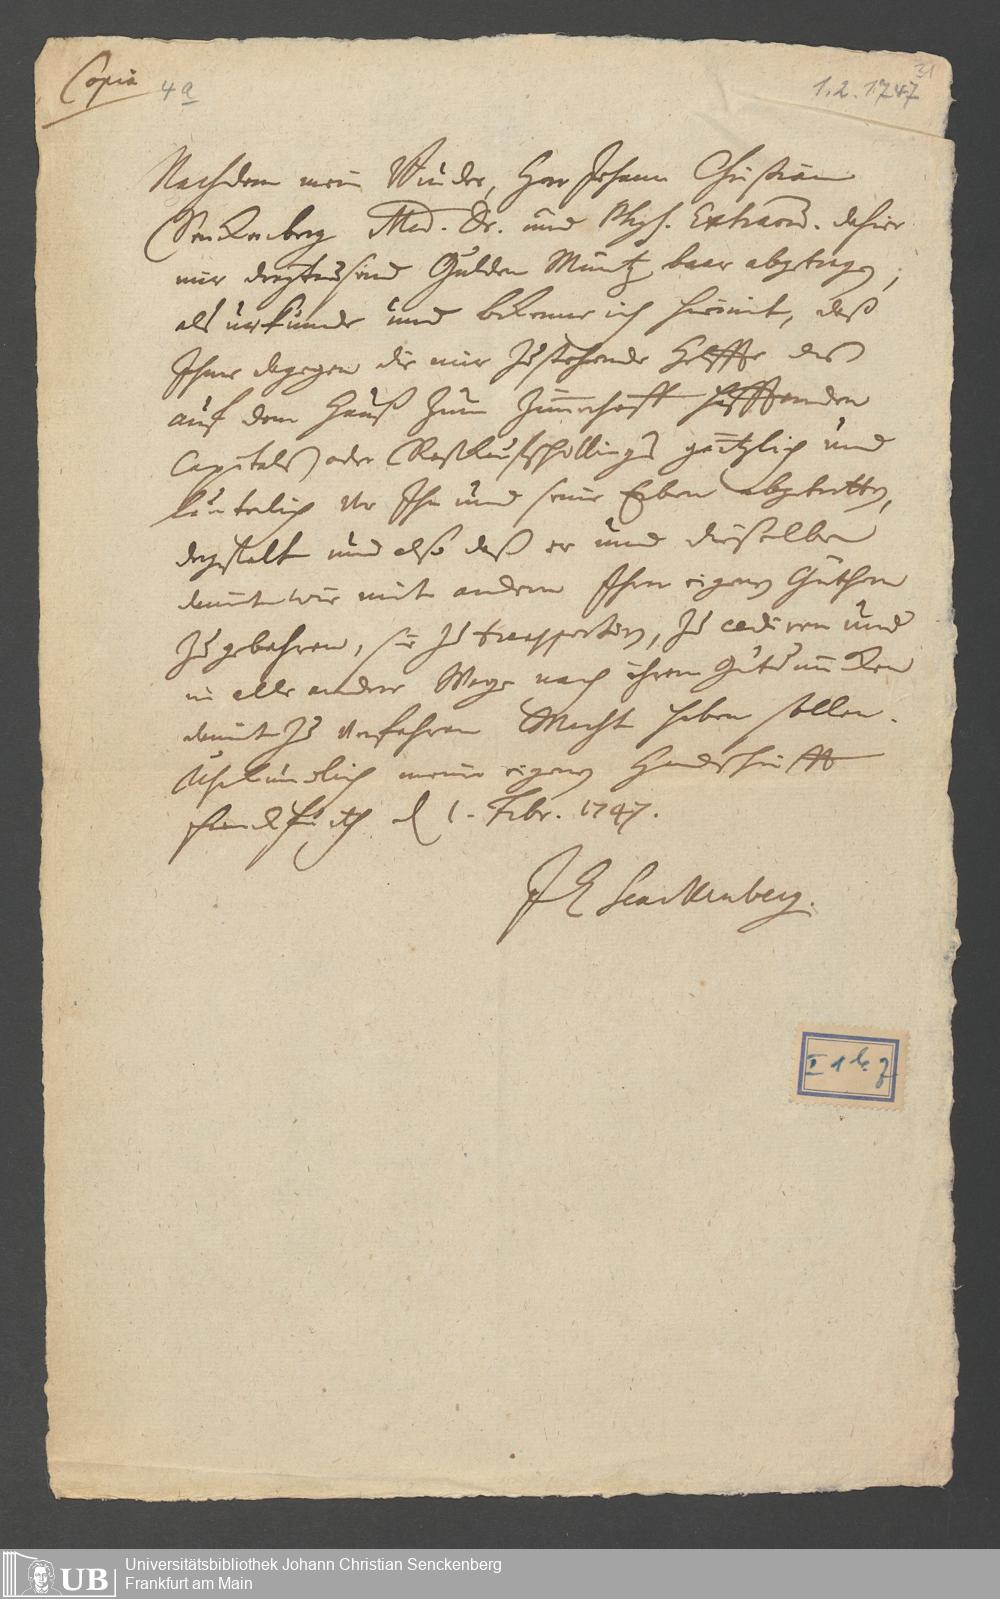 Copia 4a 1.2.1747 31
Nachdem mein Bruder, Herr Johann Christian
Senckenberg Med. Dr. und Phys. Extraord. dahier
mir dreytausend Gulden Müntz baar abgetragen,
als urkunde und bekenne ich hiermit, daß
Ihme dagegen die mir zustehende Helffte des
auf dem Hauß zum hafftenden
Capitals oder RestKaufschillings gäntzlich und
lauterlich vor Ihn und seine Erben abgetretten,
dergestalt und also daß er und dieselben
damit wie mit andern Ihren eigenen Güthern
zu gebahren, sie zu transportiren, zu cediren und
in alle andere Wege nach ihrem Gutduncken
damit zu verfahren Macht haben sollen.
Uhrkundlich meiner eigenen Handschrifft
Franckfurth d. 1. Febr. 1747.
J E Senckenberg.
II 1 b. 7
UB Universitätsbibliothek Johann Christian Senckenberg
Frankfurt am Main